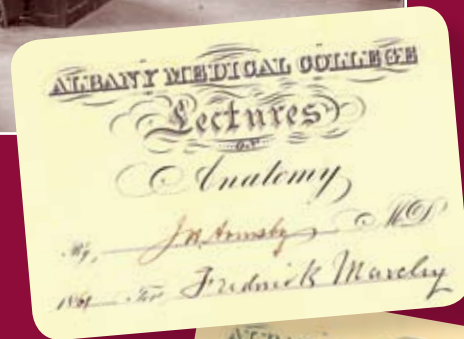 ALBANY MEDICAL COLLEGE
Lectures
ON
Anatomy
By, J H Armsby MD
1861 For Fredrick